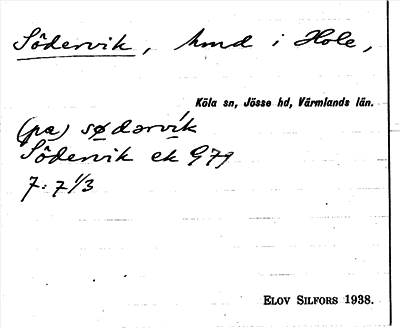 Södervik, hmd i Hole,
Köla sn, Jösse hd, Värmlands län.
(pa) sødərvik
Södervik ek G79
7:7 1/3
ELOV SILFORS 1938.